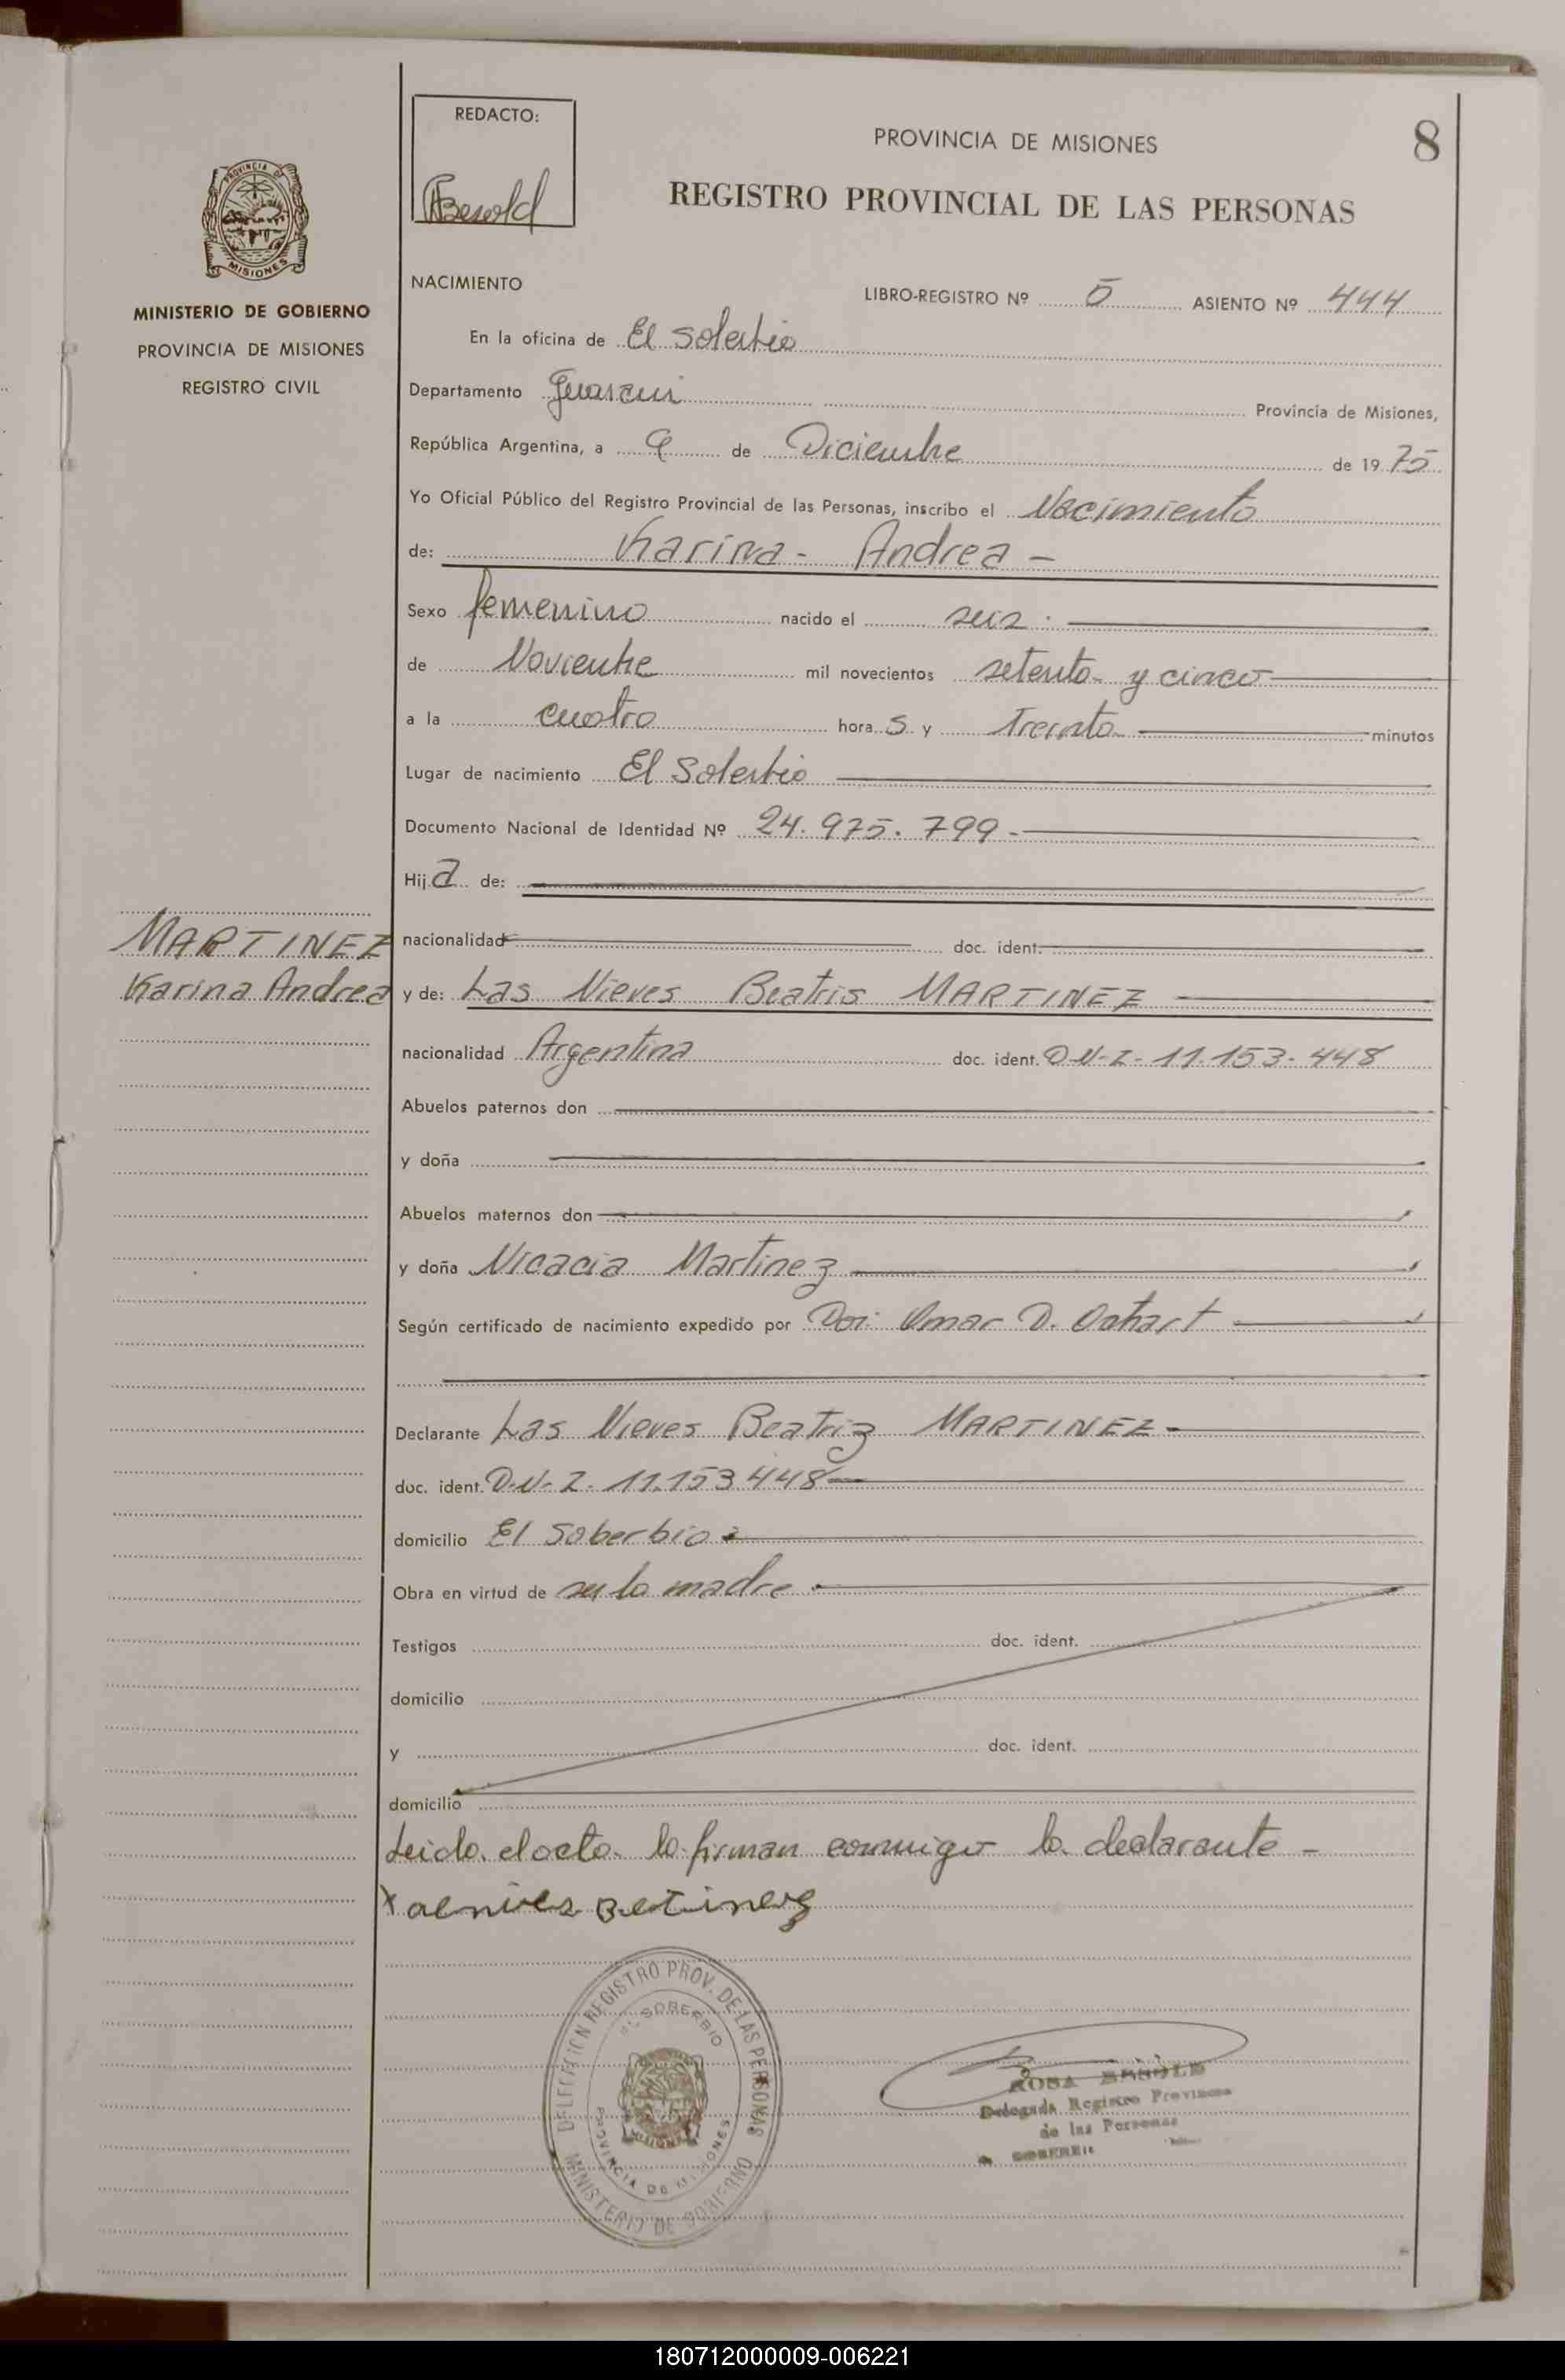 REDACTO:
PROVINCIA DE MISIONES
8
REGISTRO PROVINCIAL DE LAS PERSONAS
PROVINCIA D
MISIONES
MINISTERIO DE GOBIERNO
PROVINCIA DE MISIONES
REGISTRO CIVIL
NACIMIENTO
LIBRO-REGISTRO Nº 5 ASIENTO Nº 444
En la oficina de El Soberbio
Departamento Guarani Provincia de Misiones,
República Argentina, a 9 de Diciembre de 1975
Yo Oficial Público del Registro Provincial de las Personas, inscribo el Nacimiento
de: Karina - Andrea -
Sexo femenino nacido el seis
de Noviembre mil novecientos setenta y cinco
a la cuatro hora s y Treinta minutos
Lugar de nacimiento El Soberbio
Documento Nacional de Identidad Nº 24.975.799 -
Hija de:
nacionalidad doc. ident.
MARTINEZ
Karina Andrea
y de: Las Nieves Beatris MARTINEZ
nacionalidad Argentina doc. ident. D.N.I. 11.153.448
Abuelos paternos don
y doña
Abuelos maternos don
y doña Nicacia Martinez
Según certificado de nacimiento expedido por Omar D.
Declarante Las Nieves Beatriz MARTINEZ -
doc. ident. D.N.I. 11.153448
domicilio El Soberbio
Obra en virtud de ser la madre
Testigos doc. ident.
domicilio
y doc. ident.
domicilio
Leida el acta la firman conmigo la declarante -
DELEGACION REGISTRO PROV. DE LAS PERSONAS
EL SOBERBIO
PROVINCIA DE MISIONES
MINISTERIO DE GOBIERNO
ROSA
Delegada Registro
de las Personas
180712000009-006221